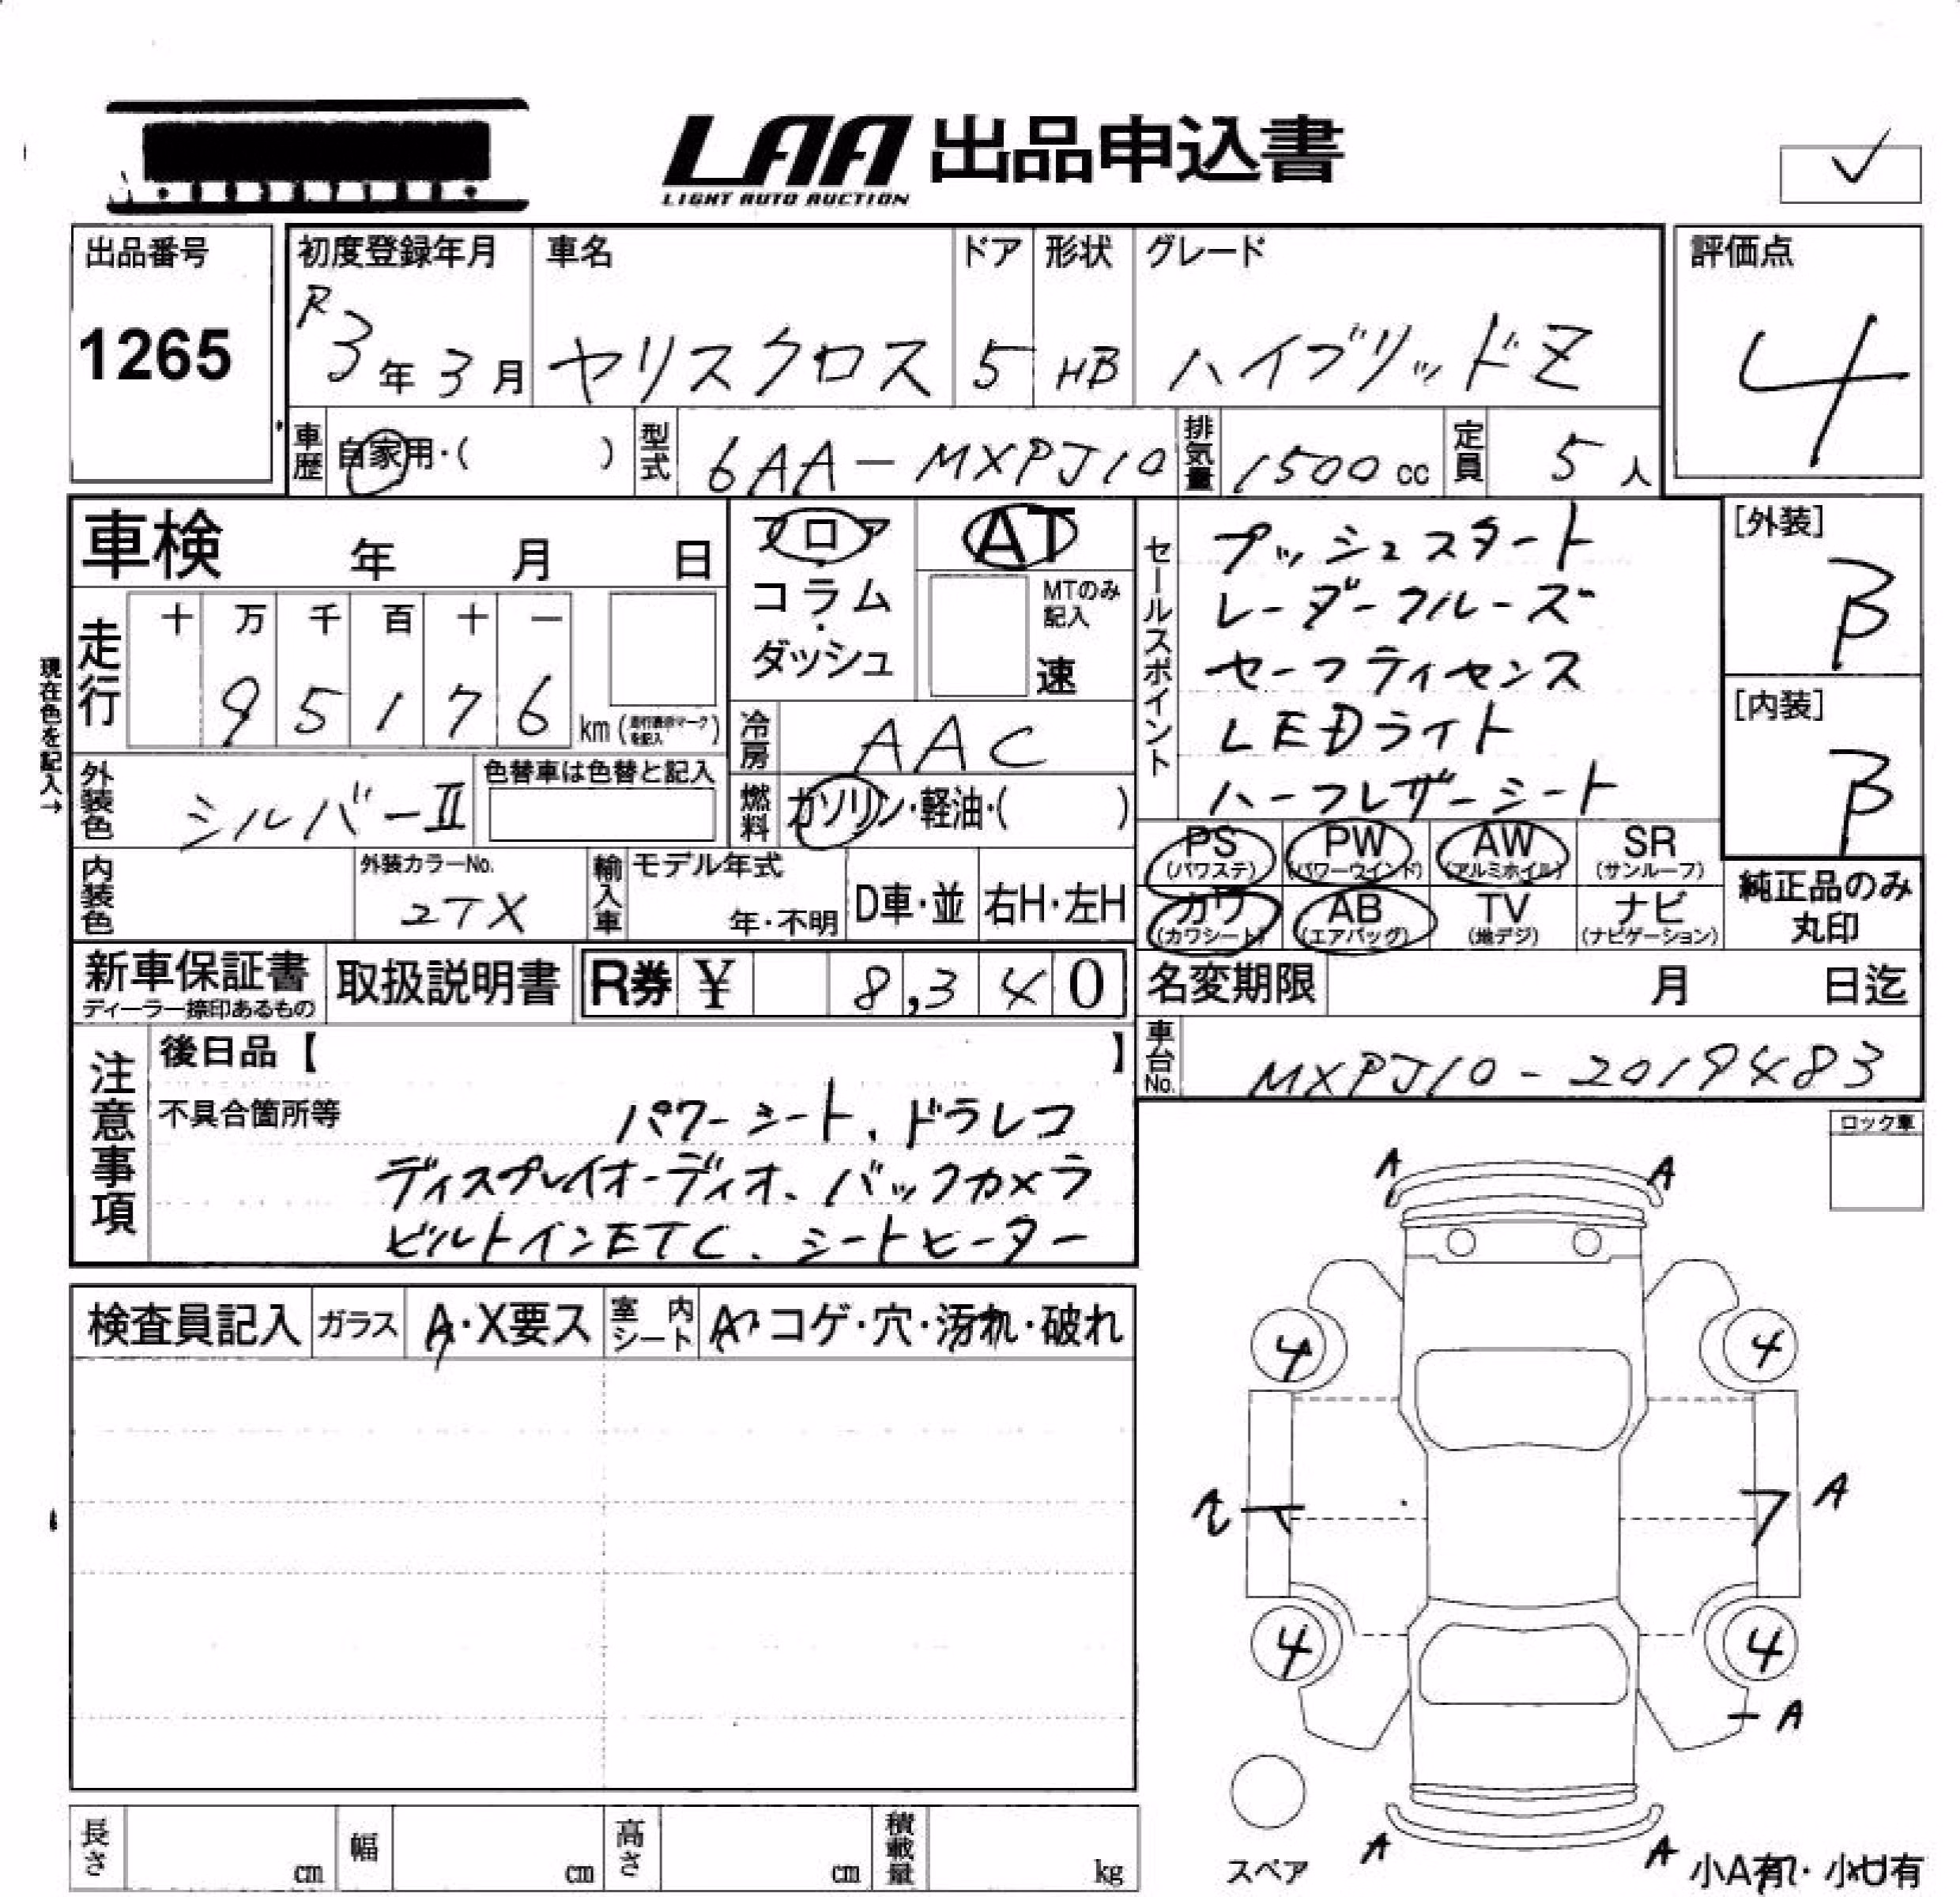 LAA 出品申込書
LIGHT AUTO AUCTION
出品番号
1265
初度登録年月
R3年3月
車名
ヤリスクロス
ドア
5
形状
HB
グレード
ハイブリッドZ
評価点
4
車歴 自家用・( )
型式 6AA-MXPJ10
排気量 1500cc
定員 5人
車検 年 月 日
走行
十 万 千 百 十 一
95176 km
現在色を記入→
フロア
コラム・
ダッシュ
AT
MTのみ記入
速
冷房 AAC
燃料 ガソリン・軽油・( )
外装色 シルバーII
色替車は色替と記入
内装色
外装カラーNo.
2TX
輸入車
モデル年式
年・不明
D車・並
右H・左H
セールスポイント
プッシュスタート
レーダークルーズ
セーフティセンス
LEDライト
ハーフレザーシート
[外装]
B
[内装]
B
PS (パワステ)
PW (パワーウインド)
AW (アルミホイル)
SR (サンルーフ)
カワ (カワシート)
AB (エアバッグ)
TV (地デジ)
ナビ (ナビゲーション)
純正品のみ
丸印
新車保証書
ディーラー捺印あるもの
取扱説明書
R券 ¥ 8,340
名変期限 月 日迄
車台No. MXPJ10-2019483
注意事項
後日品【 】
不具合箇所等
パワーシート、ドラレコ
ディスプレイオーディオ、バックカメラ
ビルトインETC、シートヒーター
ロック車
検査員記入
ガラス A・X要ス
室内シート A・コゲ・穴・汚れ・破れ
A A
4 4
A
4 4
A
A A
スペア
小A有・小U有
長さ cm
幅 cm
高さ cm
積載量 kg